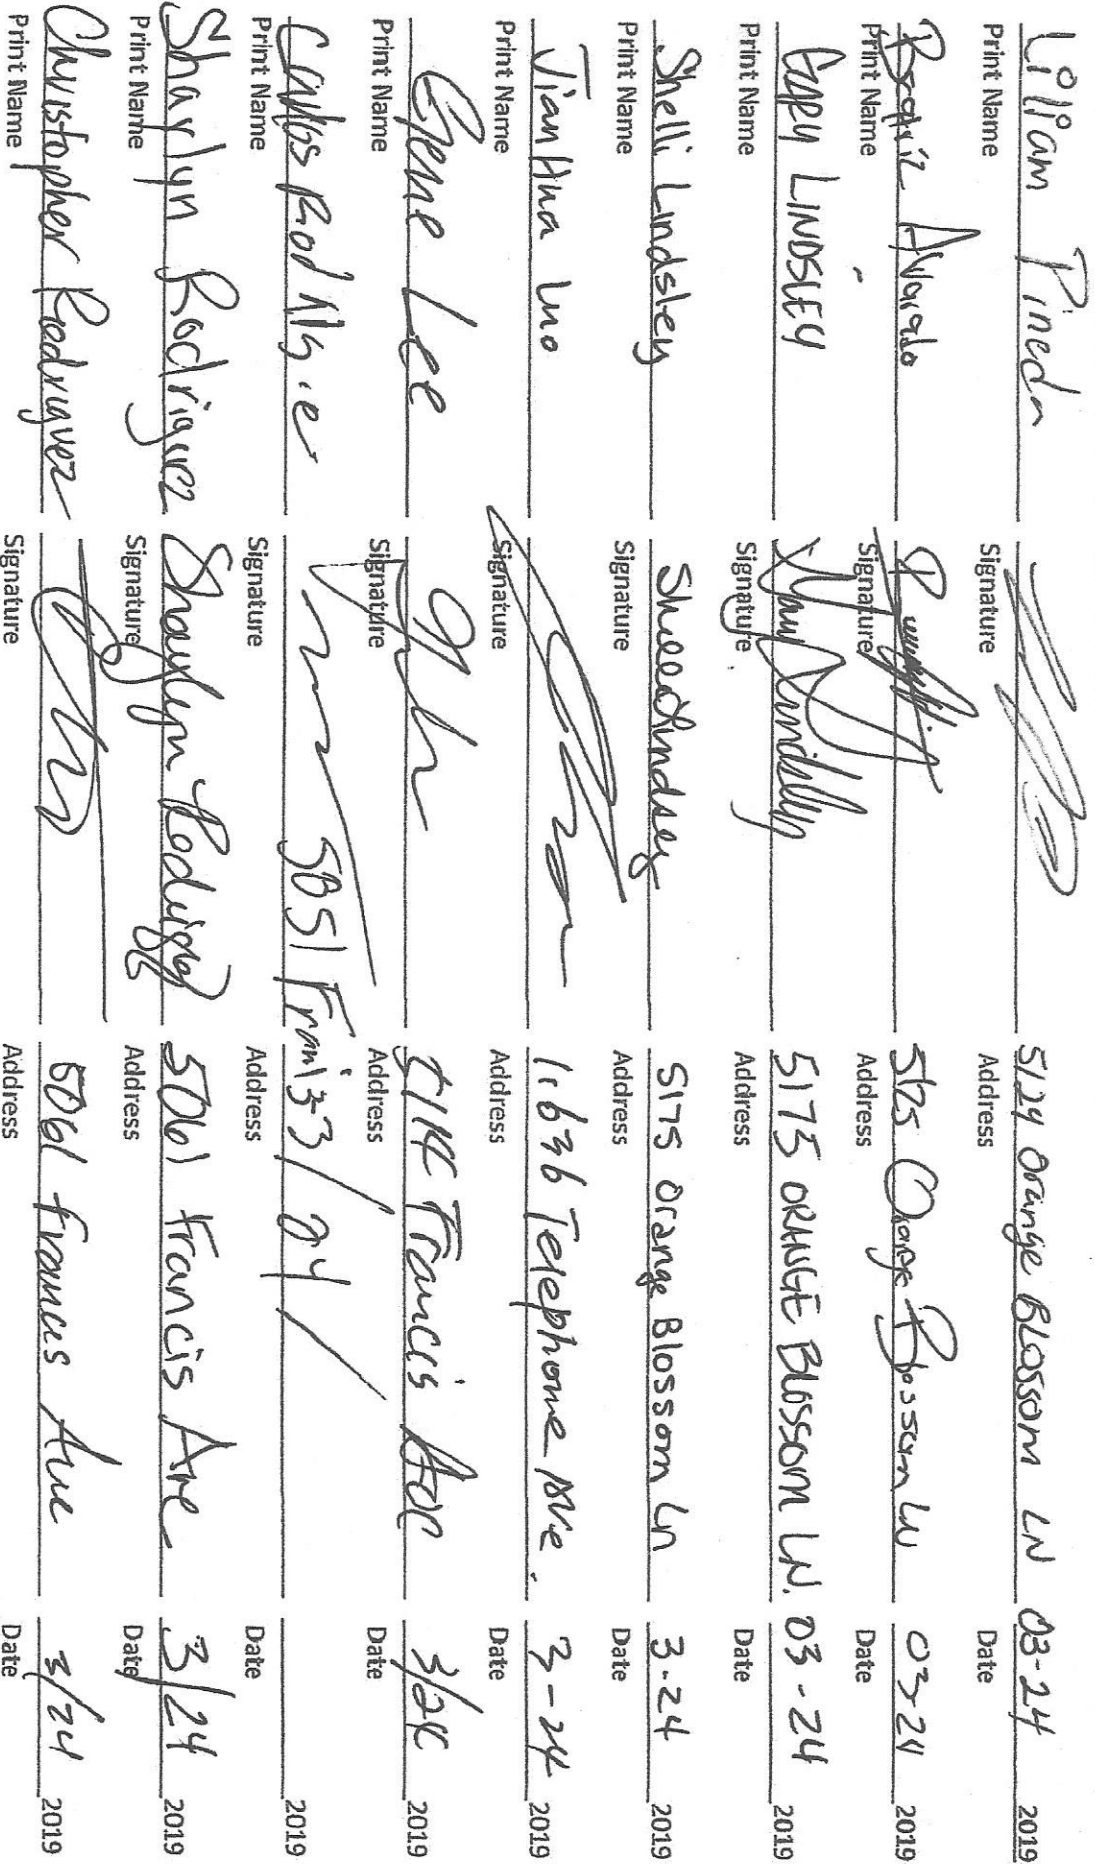 Liliam Pineda 5124 Orange BLossom LN 03-24 2019
Print Name Signature Address Date
Alvarado 5125 Orange Blossom Ln 03-24 2019
Print Name Signature Address Date
GARY LINDSLEY Gary Lindsley 5175 ORANGE BLOSSOM LN. 03-24 2019
Print Name Signature Address Date
Shelli Lindsley 5175 Orange Blossom Ln 3-24 2019
Print Name Signature Address Date
Jian Hua Luo 11636 Telephone Ave. 3-24 2019
Print Name Signature Address Date
Gene Lee Francis Ave 3/24 2019
Print Name Signature Address Date
Carlos 5051 3/24/ 2019
Print Name Signature Address Date
Sharlyn Rodriguez Sharlyn Rodriguez 5061 Francis Ave 3/24 2019
Print Name Signature Address Date
Christopher Rodriguez 5061 Francis Ave 3/24 2019
Print Name Signature Address Date